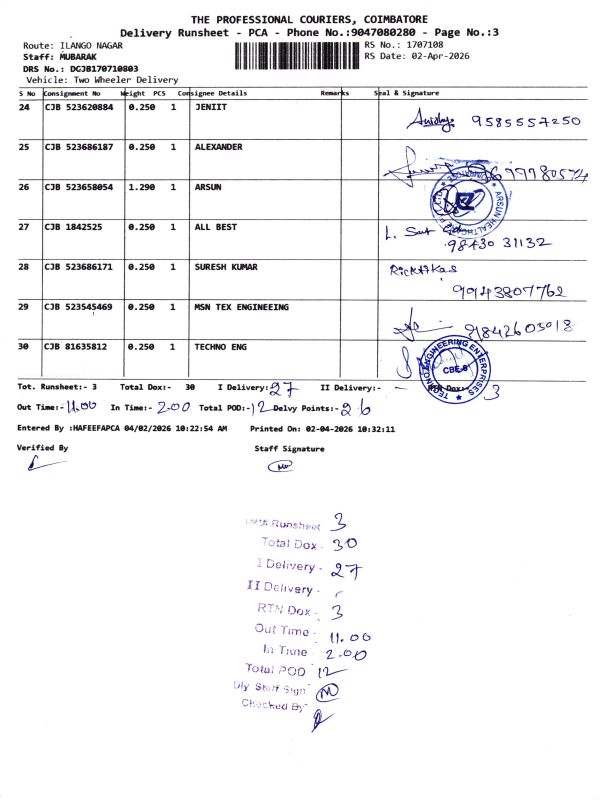 THE PROFESSIONAL COURIERS, COIMBATORE
Delivery Runsheet - PCA - Phone No.:9047080280 - Page No.:3
Route: ILANGO NAGAR RS No.: 1707108
Staff: MUBARAK RS Date: 02-Apr-2026
DRS No.: DCJB170710803
Vehicle: Two Wheeler Delivery
S No Consignment No Weight PCS Consignee Details Remarks Seal & Signature
24 CJB 523620884 0.250 1 JENIIT
9585557250
25 CJB 523686187 0.250 1 ALEXANDER
26 CJB 523658054 1.290 1 ARSUN
27 CJB 1842525 0.250 1 ALL BEST
98430 31132
28 CJB 523686171 0.250 1 SURESH KUMAR
9943807762
29 CJB 523545469 0.250 1 MSN TEX ENGINEEING
9842603018
30 CJB 81635812 0.250 1 TECHNO ENG
TECHNO ENGINEERING ENTERPRISES
CBE-6
Tot. Runsheet:- 3 Total Dox:- 30 I Delivery:- 27 II Delivery:- - RTN Dox:- 3
Out Time:- 11.00 In Time:- 2.00 Total POD:- 12 Delvy Points:- 26
Entered By :HAFEEFAPCA 04/02/2026 10:22:54 AM Printed On: 02-04-2026 10:32:11
Verified By Staff Signature
Runsheet 3
Total Dox - 30
I Delivery - 27
II Delivery -
RTN Dox - 3
Out Time - 11.00
In Time - 2.00
Total POD 12
Dly Staff Sign
Checked By